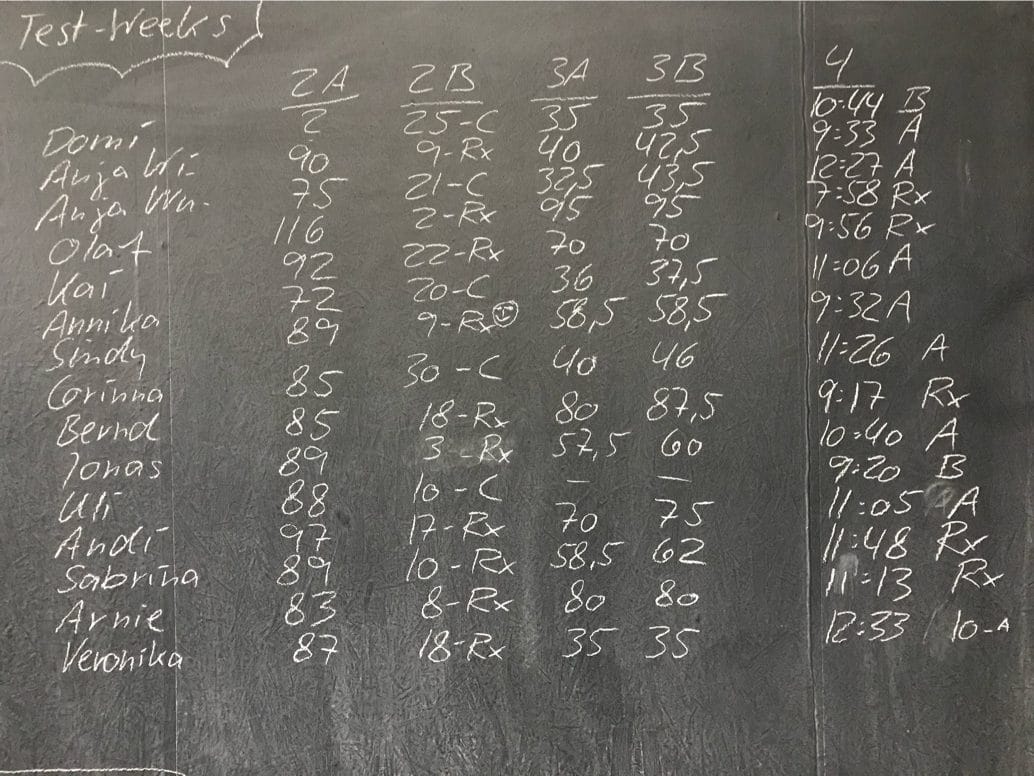 Test-Weeks
2A 2B 3A 3B 4
Domi 2 25-C 35 35 10:44 B
Anja Wi. 90 9-Rx 40 42,5 9:33 A
Anja Wu. 75 21-C 32,5 43,5 12:27 A
Olaf 116 2-Rx 95 95 7:58 Rx
Kai 92 22-Rx 70 70 9:56 Rx
Annika 72 20-C 36 37,5 11:06 A
Sindy 89 9-Rx ☺ 58,5 58,5 9:32 A
Corinna 85 30-C 40 46 11:26 A
Bernd 85 18-Rx 80 87,5 9:17 Rx
Jonas 89 3-Rx 57,5 60 10:40 A
Uli 88 10-C - - 9:20 B
Andi 97 17-Rx 70 75 11:05 A
Sabrina 89 10-Rx 58,5 62 11:48 Rx
Arnie 83 8-Rx 80 80 11:13 Rx
Veronika 87 18-Rx 35 35 12:33 / 10-A